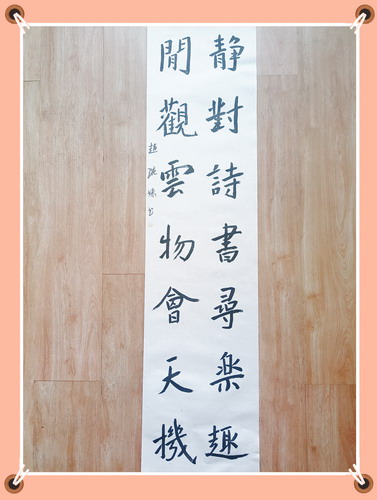 静對詩書尋樂趣
閒觀雲物會天機